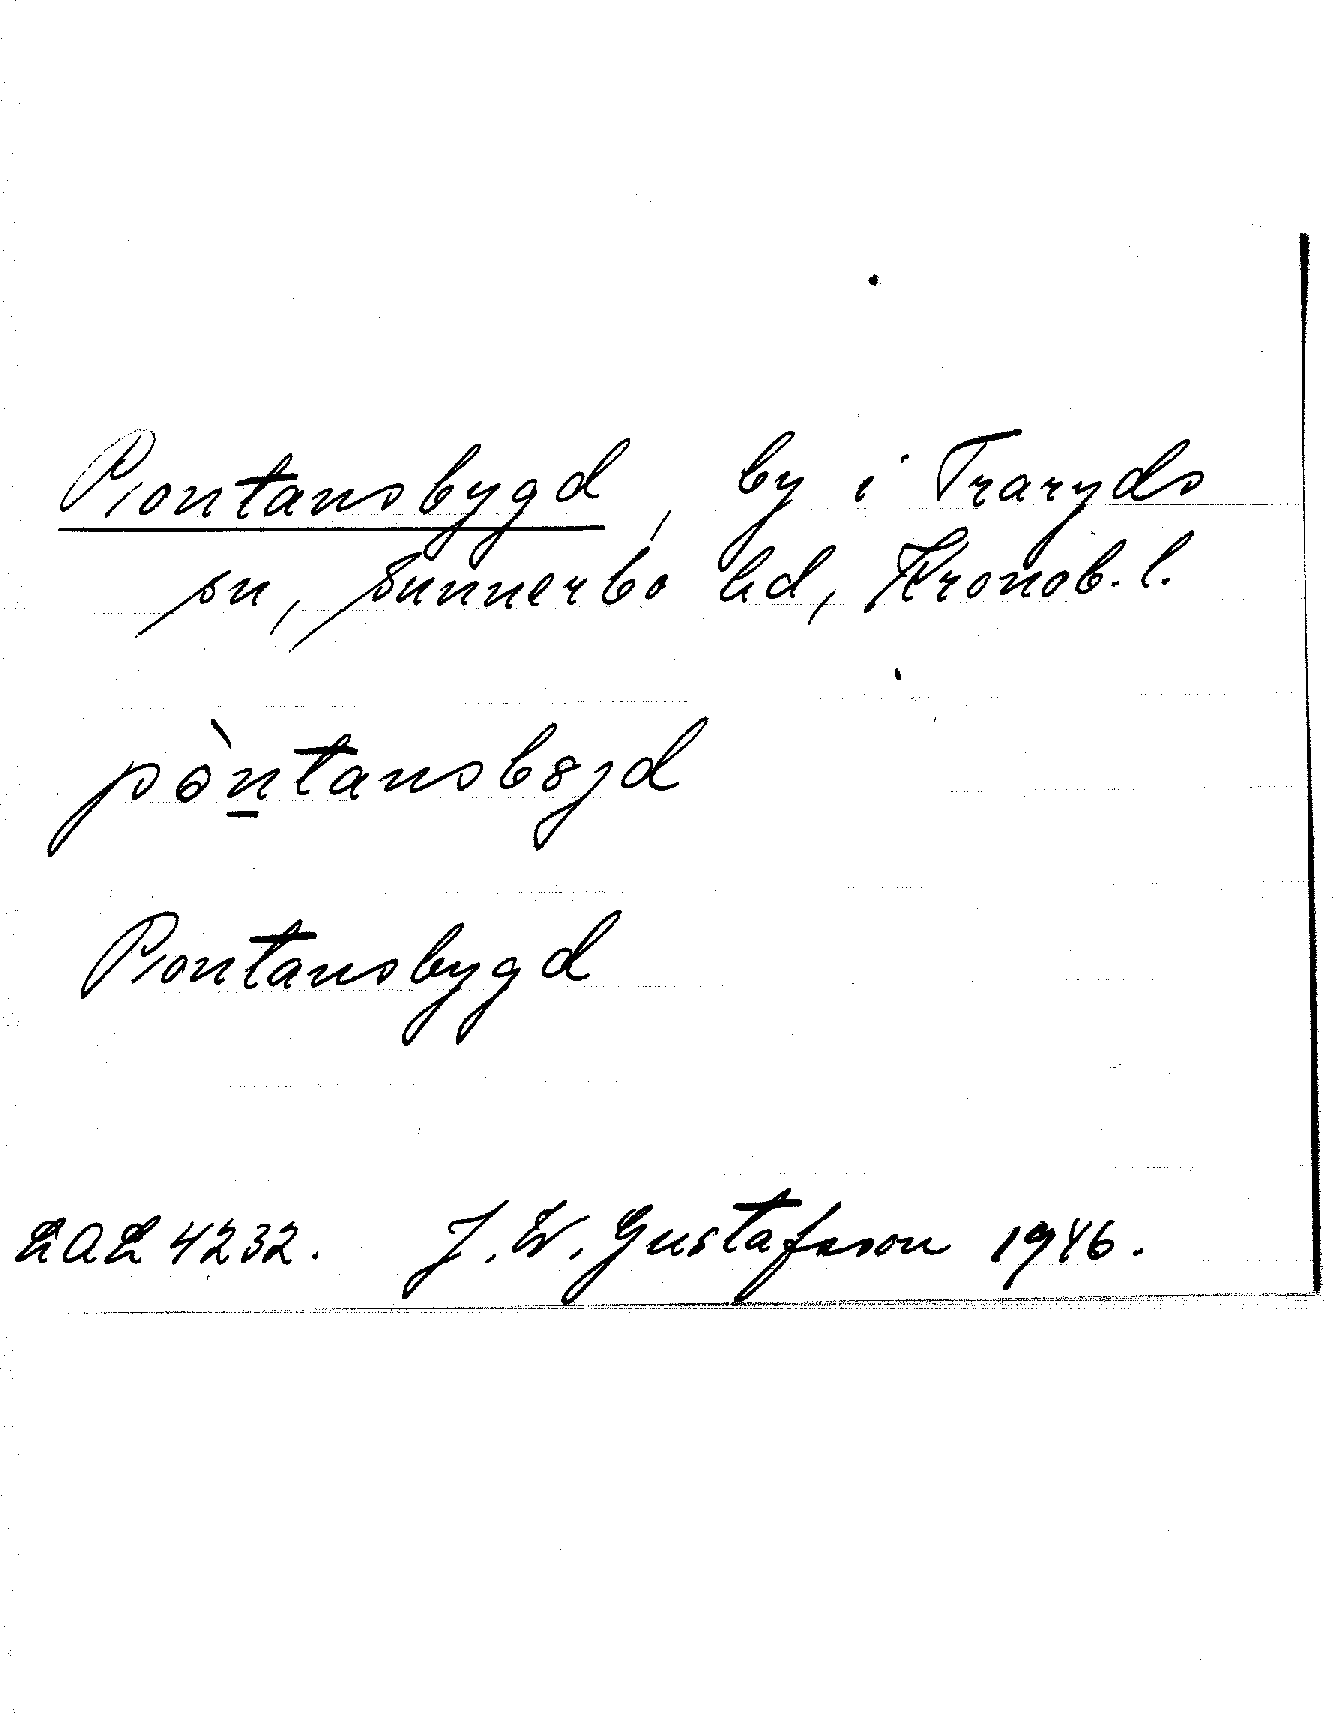 Pontansbygd, by i Traryds
sn, Sunnerbo hd, Kronob. l.
pòntansbyjd
Pontansbygd
LAL 4232. J. W. Gustafsson 1946.